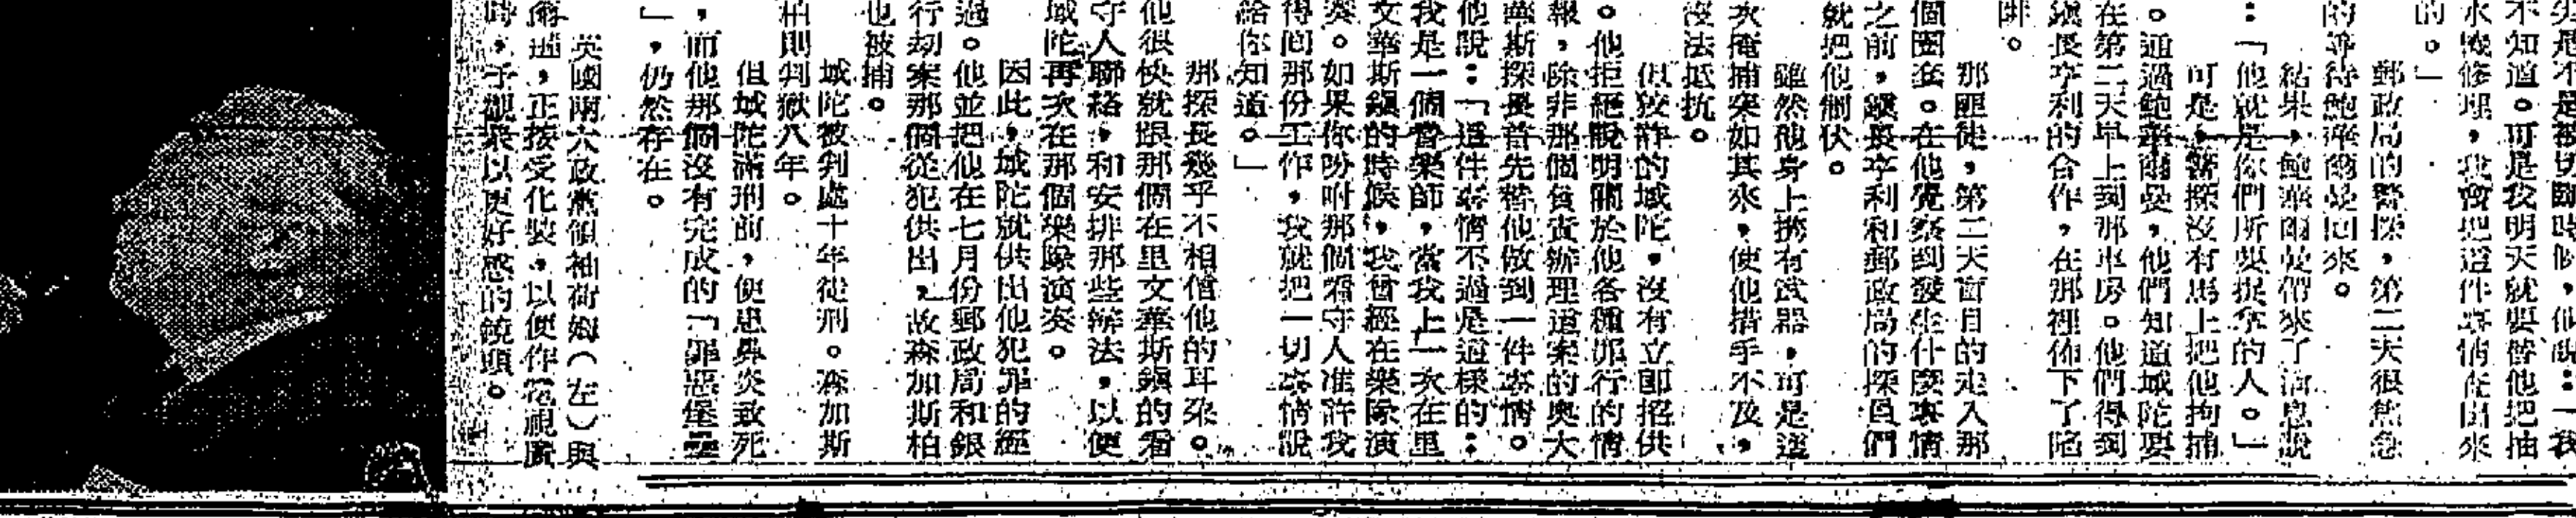 不知道。可是我明天就要替他把抽
水機修理,我會把這件事情查出來
的。」
郵政局的警探,第二天很焦急
的等待鮑華爾曼回來。
結果,鮑華爾曼帶來了消息說
:「他就是你們所要捉拿的人。」
可是,警探沒有馬上把他拘捕
。通過鮑華爾曼,他們知道城陀要
在第二天早上到那車房。他們得到
鎮長亨利的合作,在那裡佈下了陷
阱。
那匪徒,第二天盲目的走入那
個圈套。在他覺察到發生什麼事情
之前,鎮長亨利和郵政局的探員們
就把他制伏。
雖然他身上携有武器,可是這
次掩捕突如其來,使他措手不及,
沒法抵抗。
但狡詐的城陀,沒有立即招供
。他拒絕說明關於他各種罪行的情
報,除非那個負責辦理這案的奧大
華斯探長首先替他做到一件事情。
他說:「這件事情不過是這樣的:
我是一個音樂師,當我上一次在里
文華斯鎮的時候,我曾經在樂隊演
奏。如果你吩咐那個看守人准許我
得回那份工作,我就把一切事情說
給你知道。」
那探長幾乎不相信他的耳朵。
他很快就跟那個在里文華斯鎮的看
守人聯絡,和安排那些辦法,以便
城陀再次在那個樂隊演奏。
因此,城陀就供出他犯罪的經
過。他並把他在七月份郵政局和銀
行劫案那個從犯供出,故森加斯柏
也被捕。
城陀被判處十年徒刑。森加斯
柏則判獄八年。
但城陀滿刑前,便患鼻炎致死
,而他那個沒有完成的「罪惡堡壘
」,仍然存在。
英國兩大政黨領袖荷姆(左)與
爾遜,正按受化裝,以便作電視廣
時,予觀衆以更好感的鏡頭。